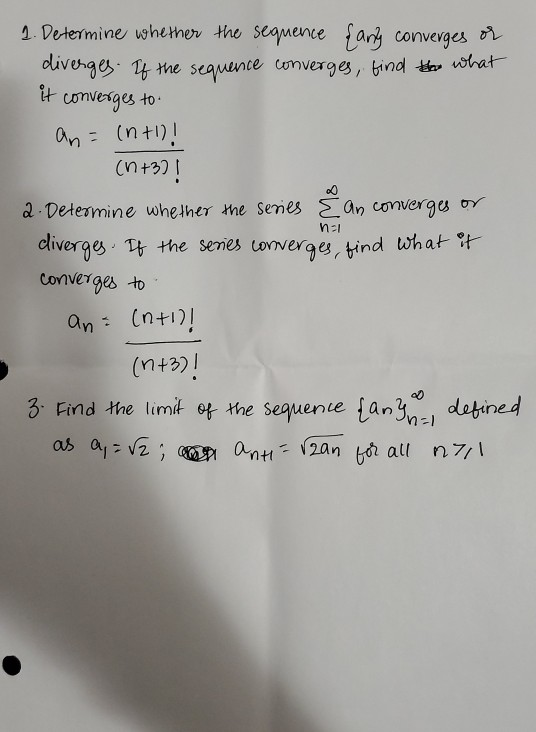 1. Determine whether the sequence {an} converges or
diverges. If the sequence converges, find what
it converges to.
an = (n+1)! / (n+3)!
2. Determine whether the series ∑_{n=1}^{∞} an converges or
diverges. If the series converges, find what it
converges to.
an = (n+1)! / (n+3)!
3. Find the limit of the sequence {an}_{n=1}^{∞} defined
as a₁ = √2 ; an+1 = √2an for all n ≥ 1